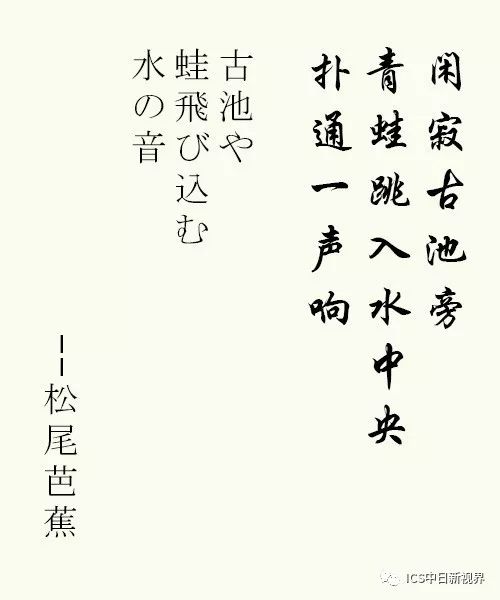 闲寂古池旁
青蛙跳入水中央
扑通一声响
古池や
蛙飛び込む
水の音
--松尾芭蕉
ICS中日新视界